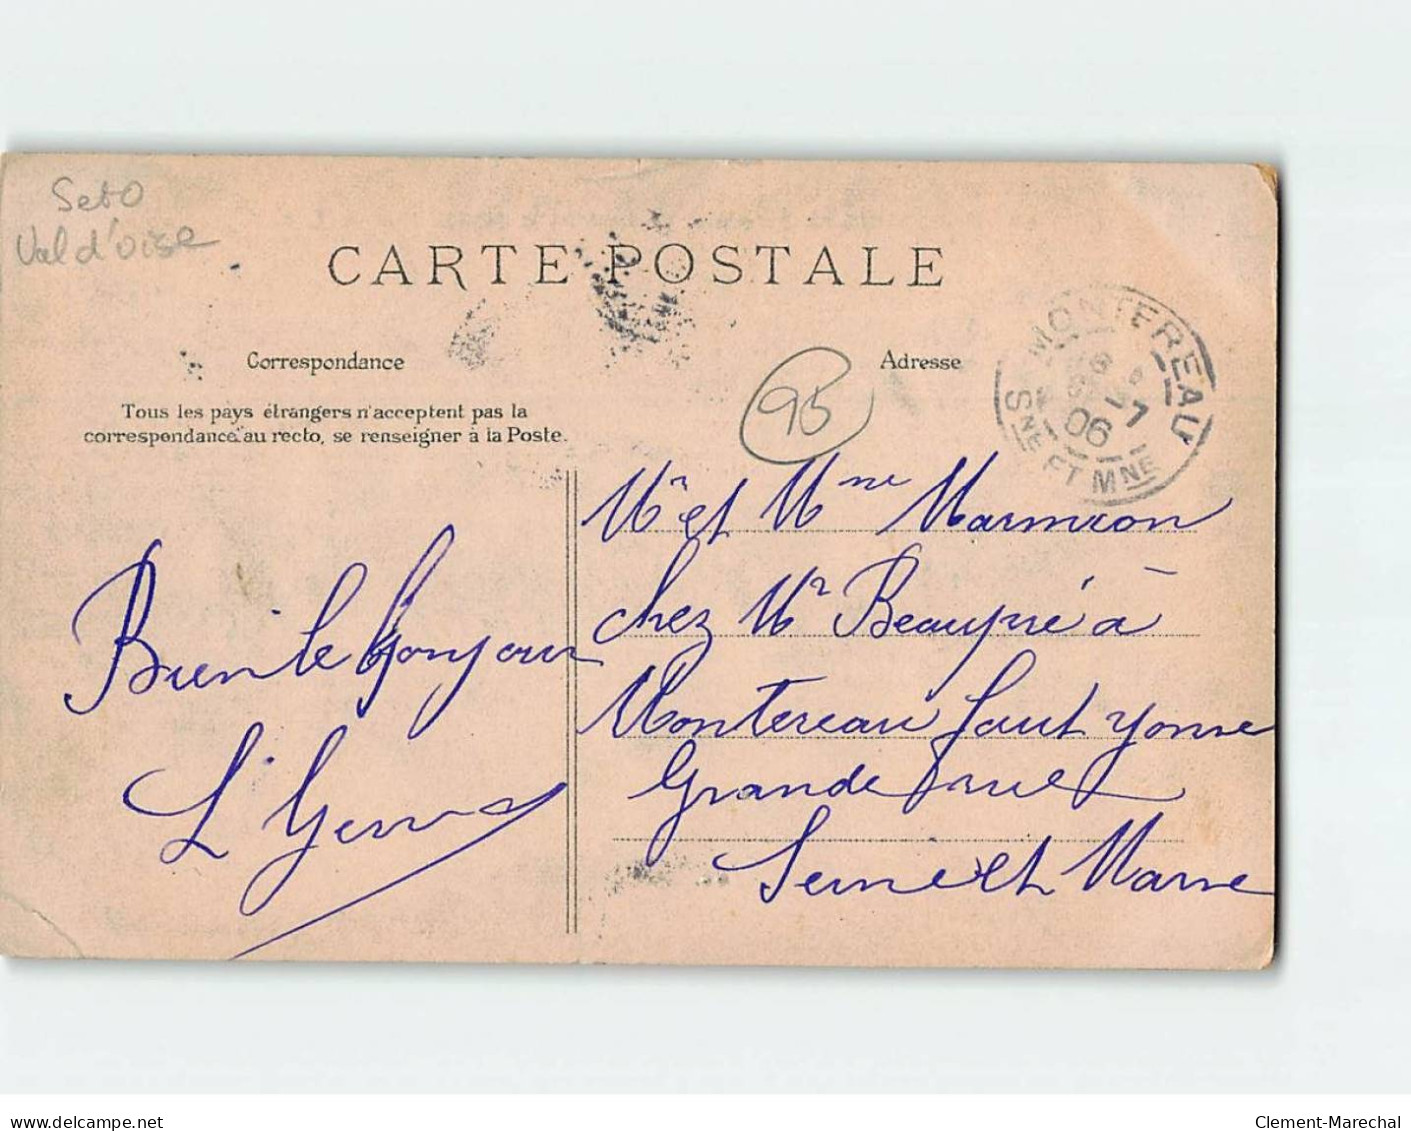 Set O
Val d'oise
CARTE POSTALE
Correspondance
Adresse
Tous les pays étrangers n'acceptent pas la
correspondance au recto, se renseigner à la Poste.
95
MONTEREAU
06
SNE ET MNE
Mr et Mme Marmion
chez Mr Beaupré à
Montereau faut yonne
Grande rue
Seine et Marne
Bien le bonjour
delcampe.net
Clement-Marechal